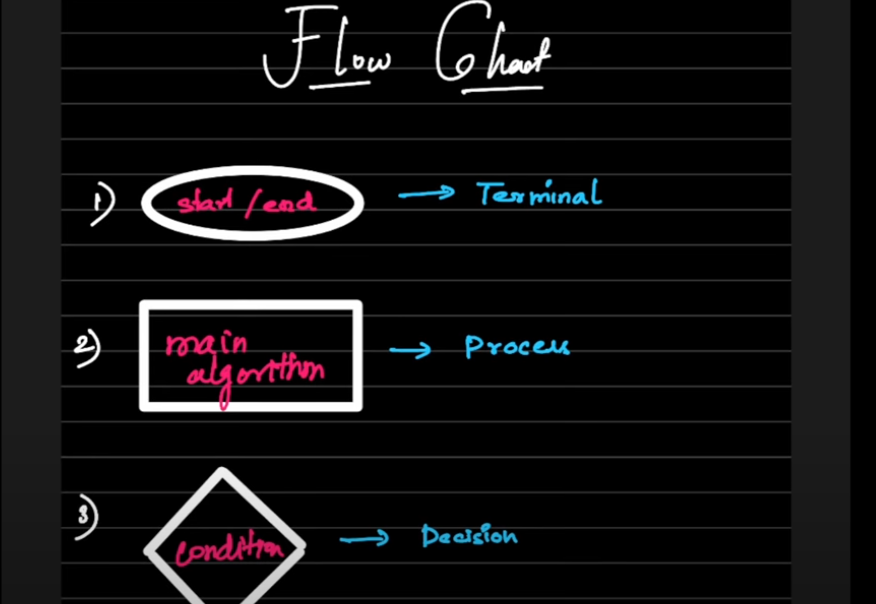 Flow Chart
1) start/end → Terminal
2) main algorithm → Process
3) condition → Decision